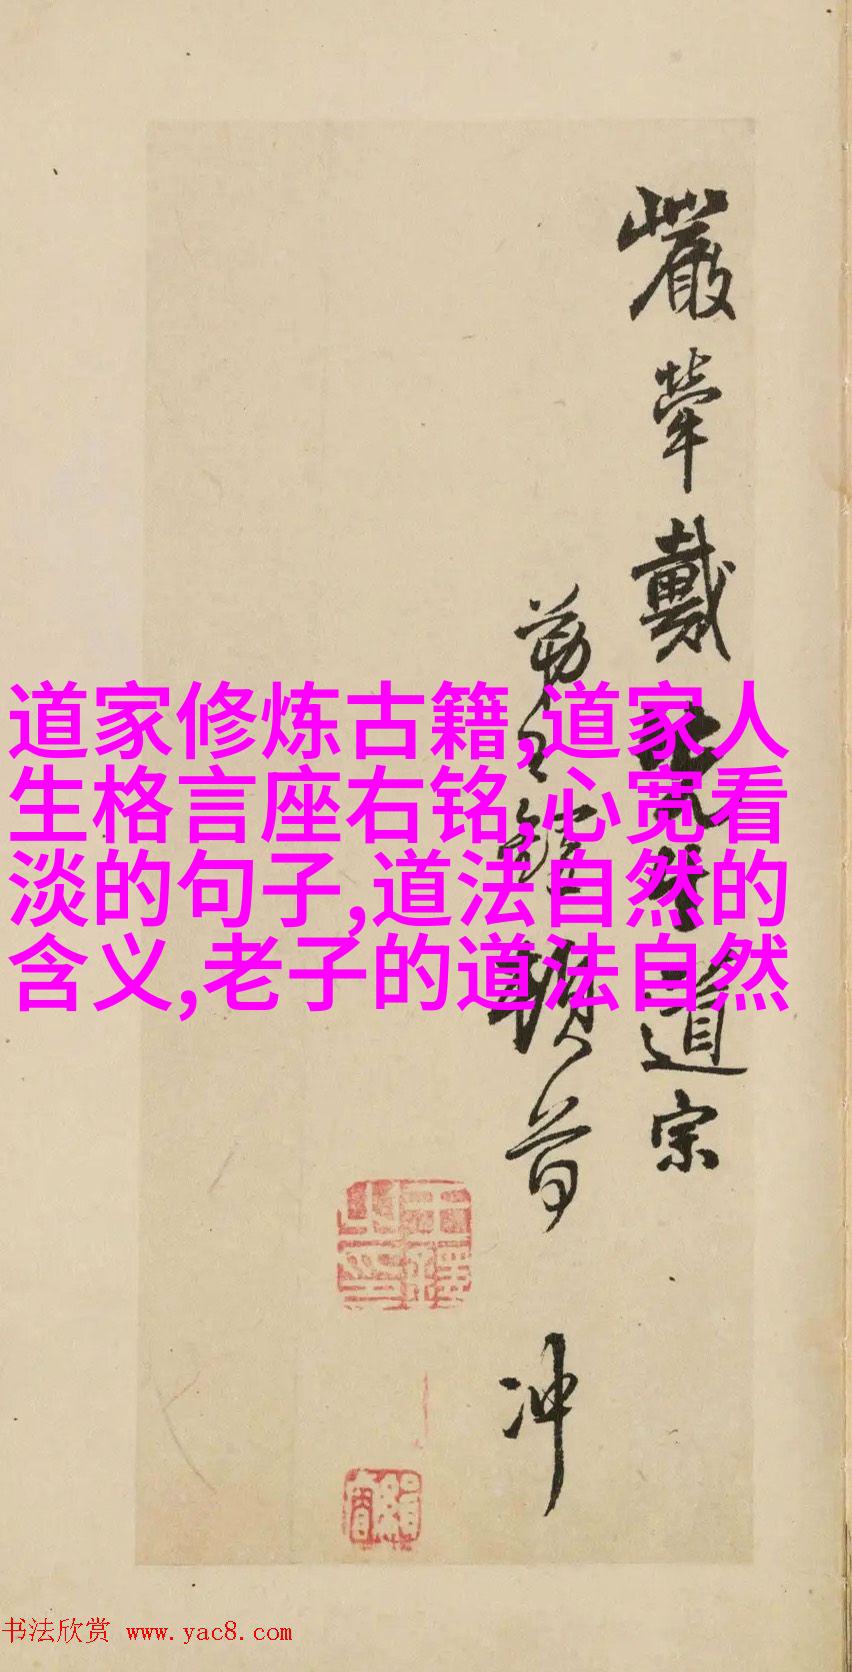 嚴犖戴
道宗
頓首
冲
道家修炼古籍,道家人
生格言座右铭,心宽看
淡的句子,道法自然的
含义,老子的道法自然
书法欣赏 www.yac8.com